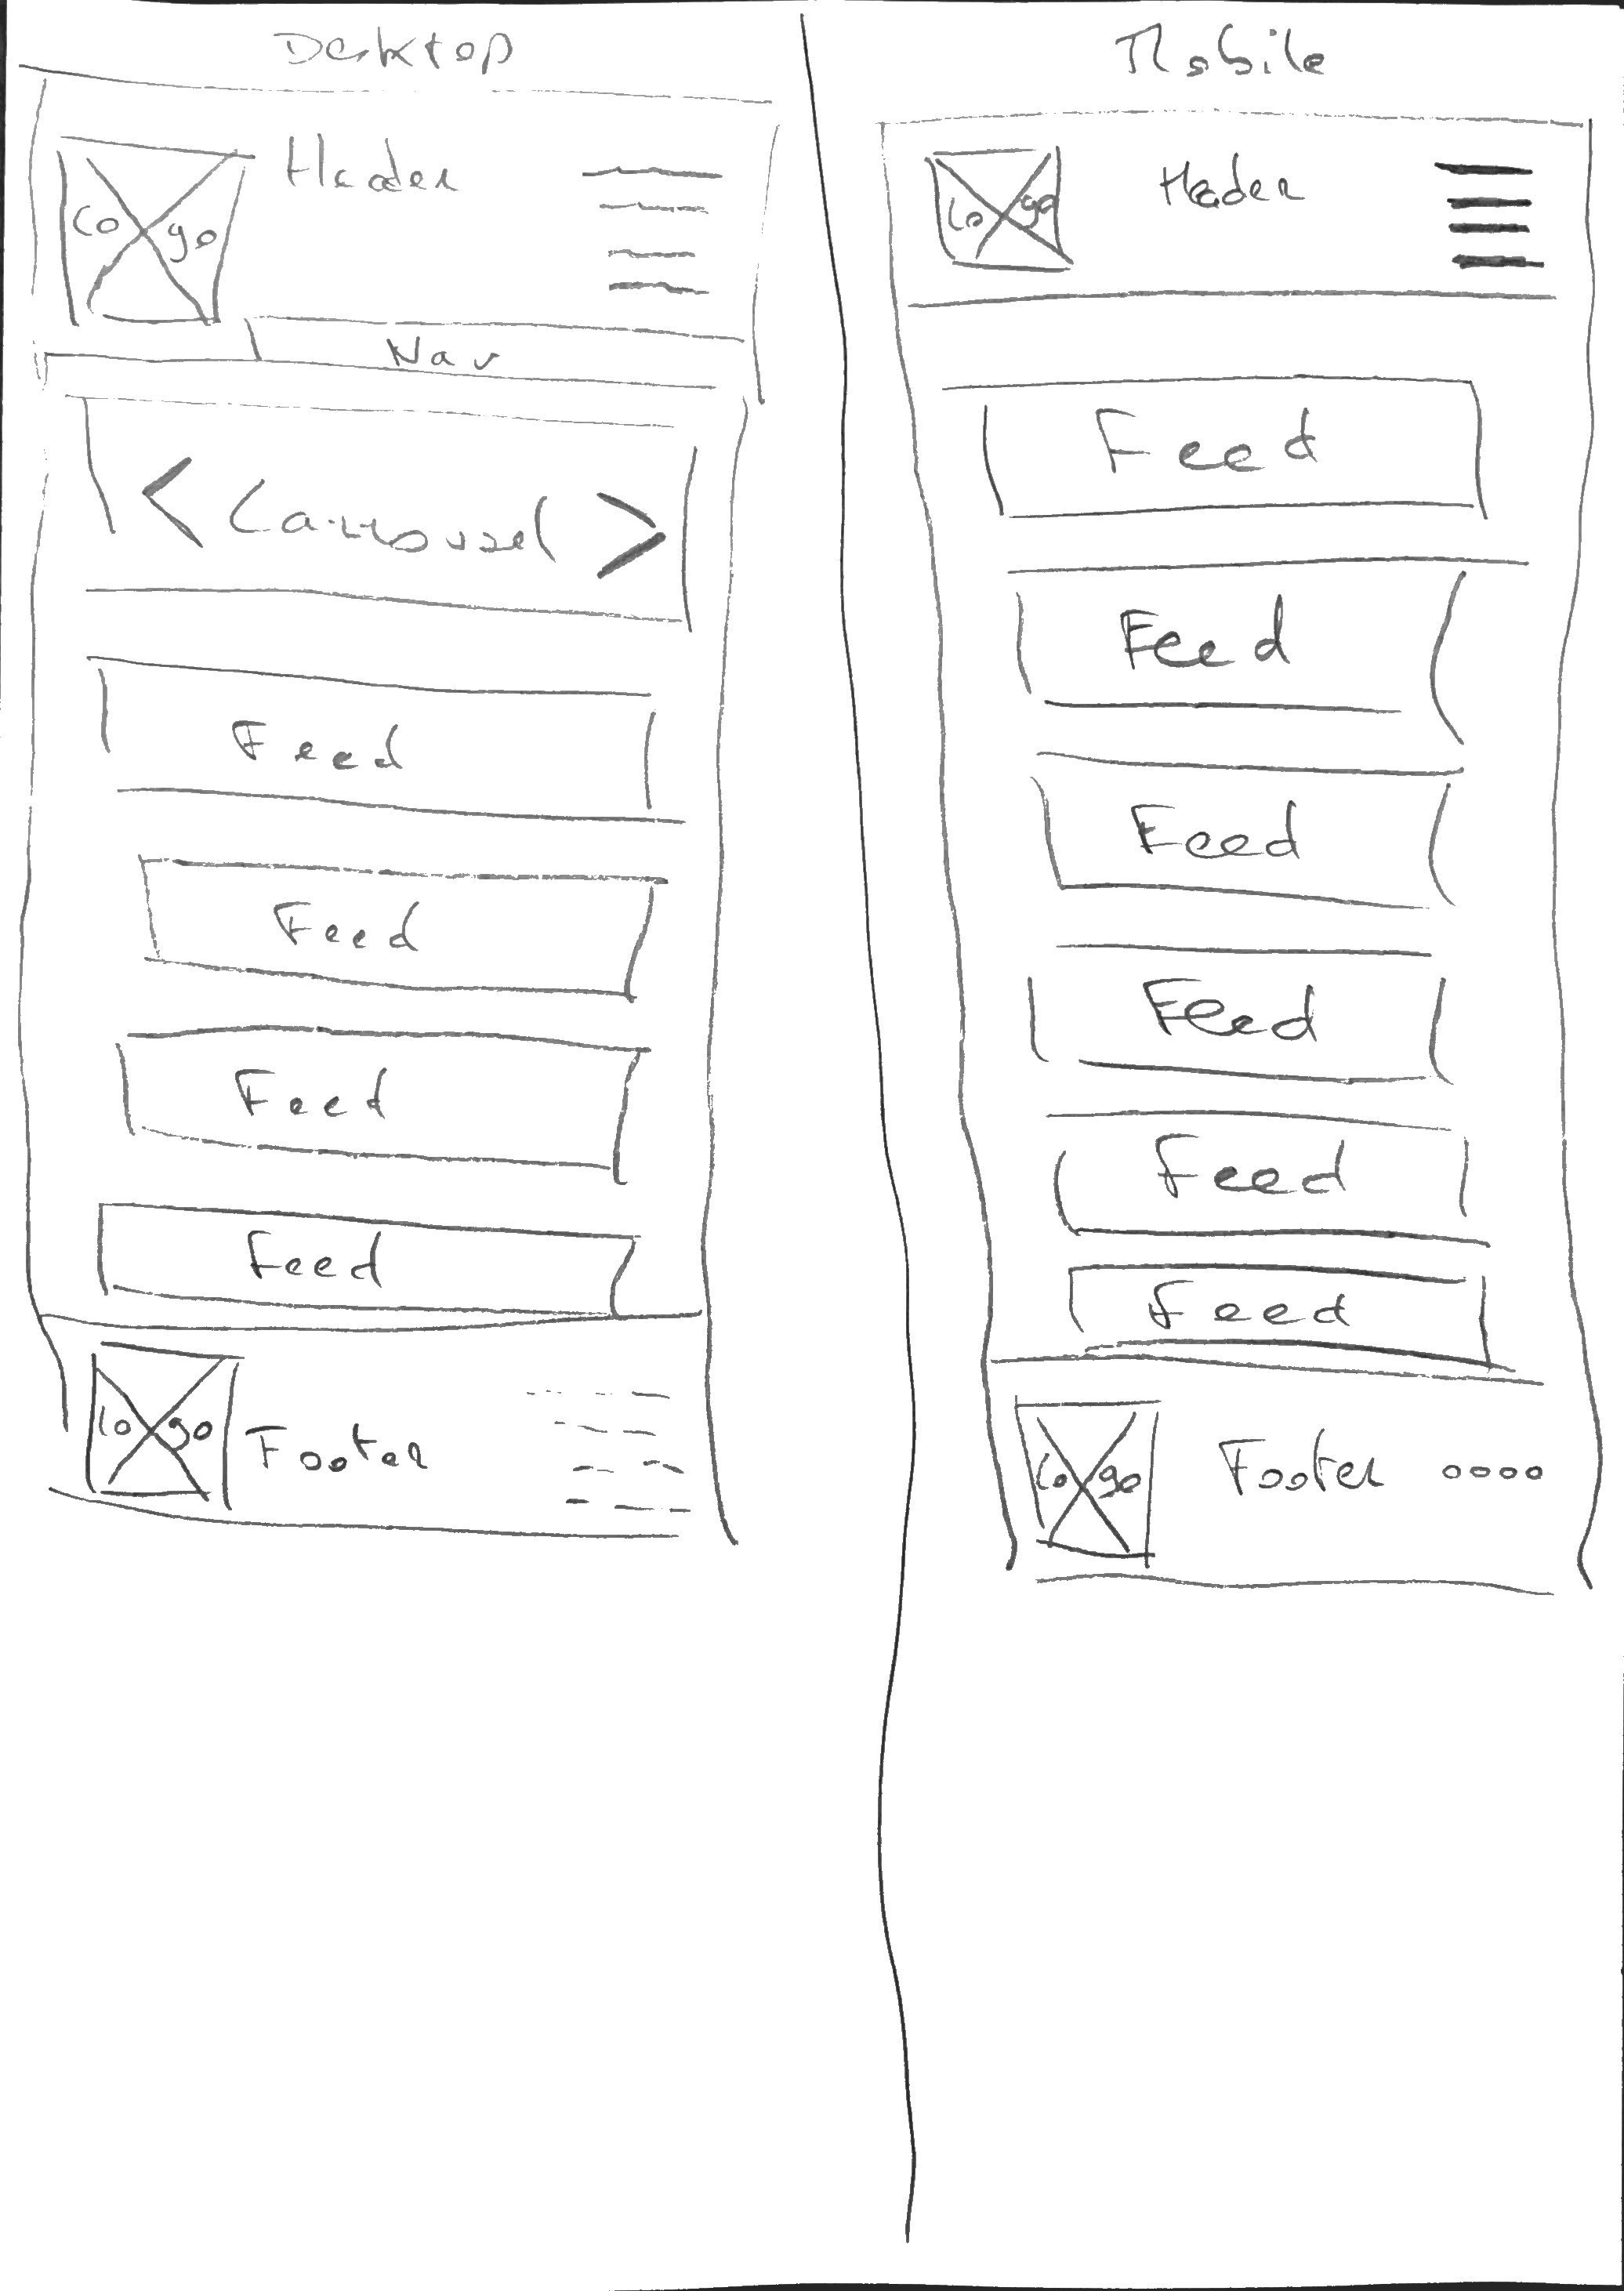 Desktop
Header
Logo
Nav
< Carrousel >
Feed
Feed
Feed
Feed
Logo
Footer
Mobile
Logo
Header
Feed
Feed
Feed
Feed
Feed
Feed
Logo
Footer